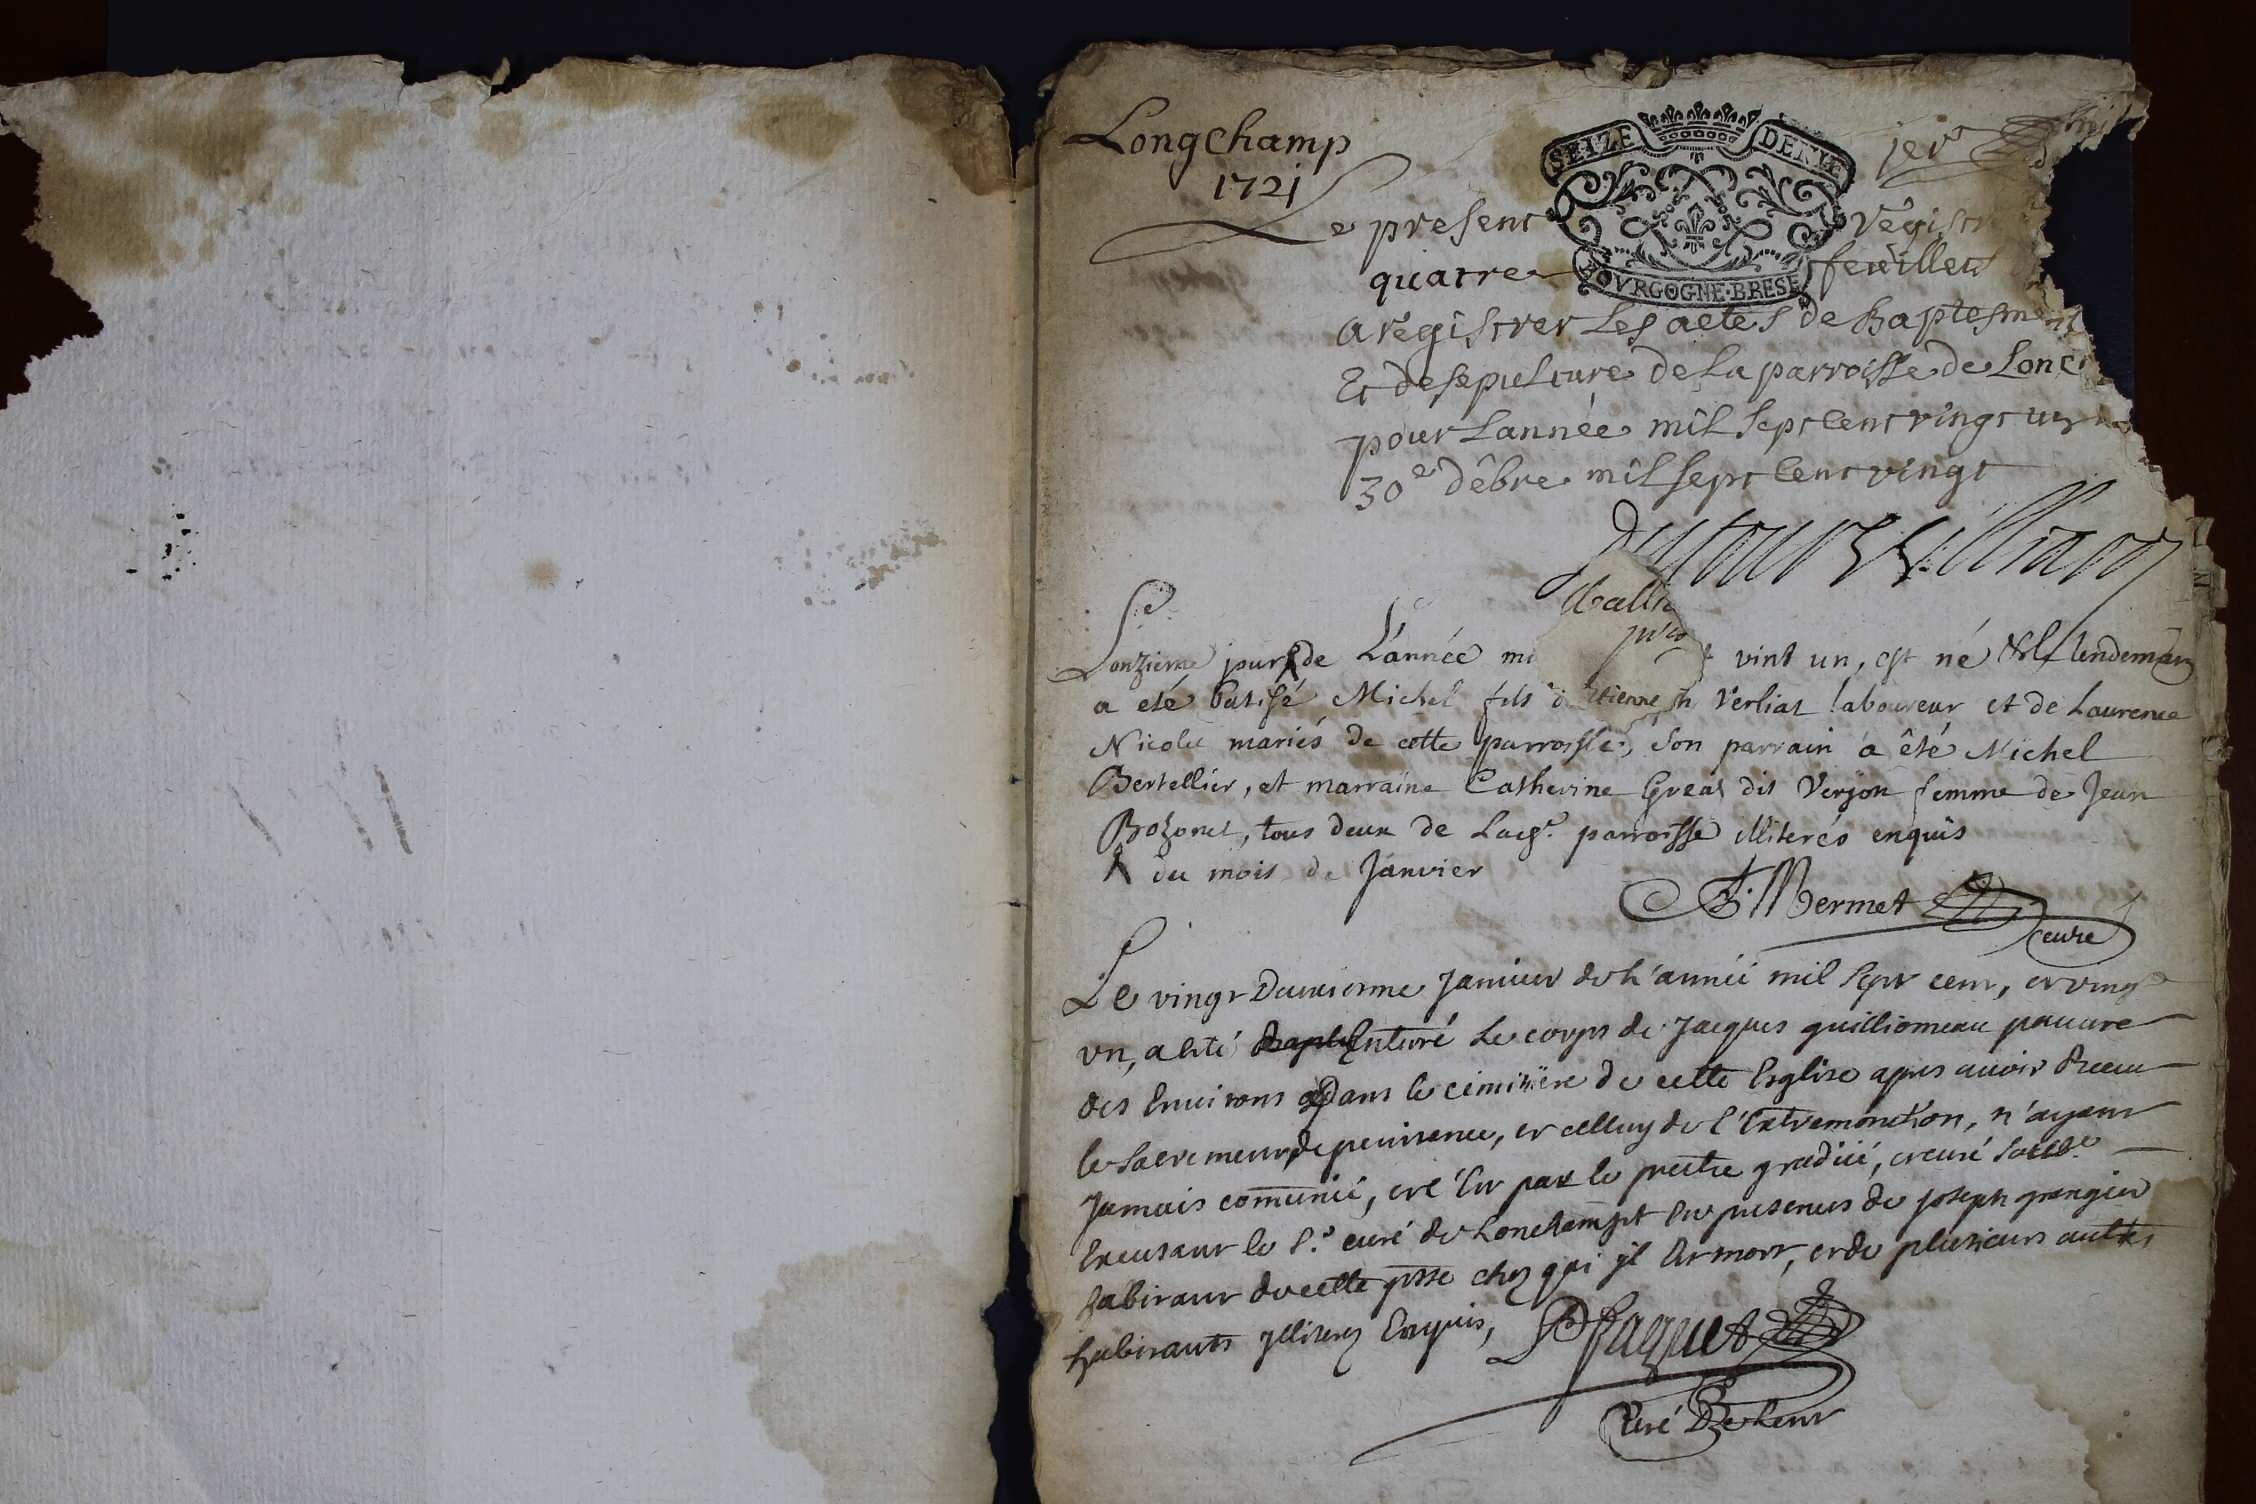 LongChamp
1721
SEIZE DENIE
BOVRGOGNE·BRESE
Le present Régistr
quatre feüillets
a régistrer Les actes de Baptesme
Et de sepulture de La parroisse de Lonc
pour Lannée mil sept cent vingt un
30e débre mil sept cent vingt
Le onzieme jour de L'année mi vint un, est né & le lendemain
a eté batisé Michel fils d Etienne Verliat laboureur et de Laurence
Nicolle mariés de cette parroisse, son parrain a êté Michel
Bertellier, et marraine Catherine Great dit Verjon femme de Jean
Bozonet, tous deux de parroisse illiterés enquis
du mois de Janvier
Mermet
curé
Le vingt Deuxieme Janvier de L'année mil sept cent, et vingt
vn, a esté Enterré Le corps de Jacques guilliomeau pauure
des Enuirons Dans le cimitiere de cette Esglise apres auoir Receu
le Sacrement de penitence, et celluy de l'Extremonction, n'ayant
Jamais comunié, par le prestre
Excusant le Sr. curé de Lonchampt En presence de joseph grangier
habitant de cette psse chez qui jl Est mort, et de plusieurs autres
habitants jlliterez Enquis,
Paquet
Curé De Lent